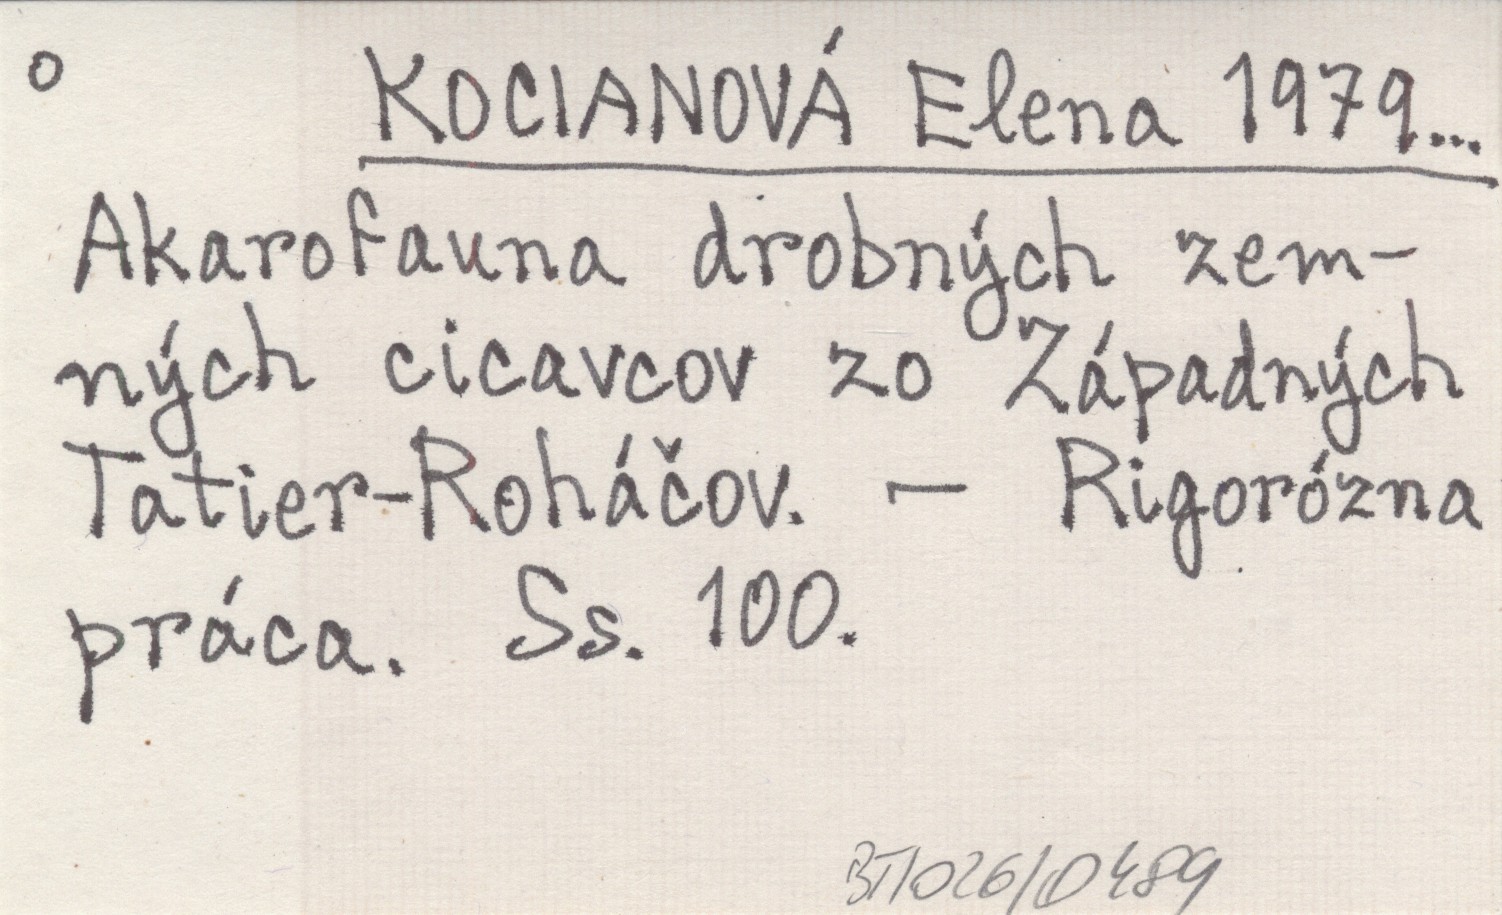 o KOCIANOVÁ Elena 1979...
Akarofauna drobných zem-
ných cicavcov zo Západných
Tatier-Roháčov. — Rigorózna
práca. Ss. 100.
BTI026/0489